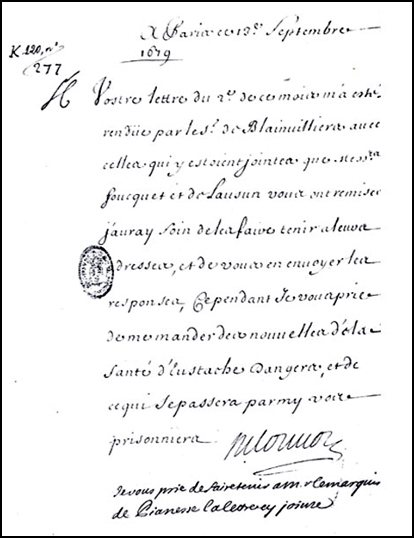 A Paris ce 18e. Septembre
1679
K.120, no
277
Vostre lettre du 2e. de ce mois m'a esté
rendüe par le Sr. de Blainvilliers avec
celles qui y estoient jointes que mess.rs
foucquet et de Lausun vous ont remises
j'auray soin de les faire tenir a leurs
adresses, et de vous en envoyer les
responses, Cependant Je vous prie
de me mander des nouvelles de la
santé d'Eustache Dangers, et de
ce qui se passera parmy vos
prisonniers
Je vous prie de faire tenir a m. r le marquis
de Pianesse la lettre cy jointe